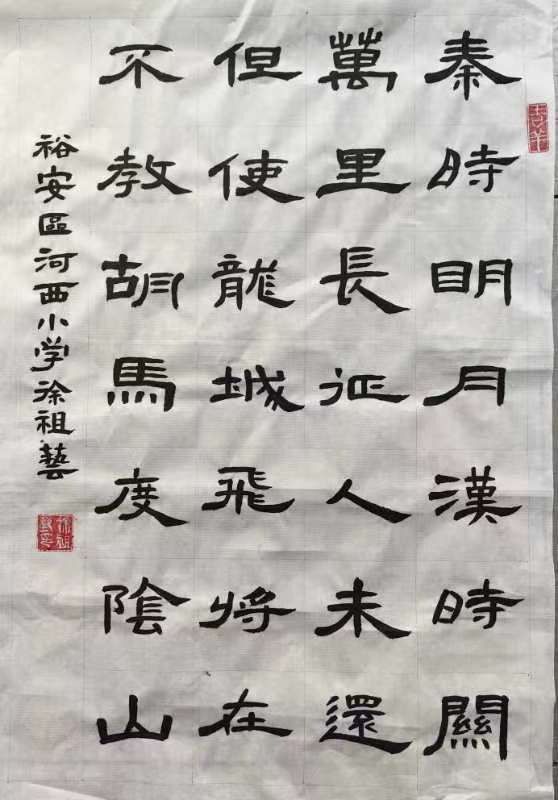 秦時明月漢時關
萬里長征人未還
但使龍城飛將在
不教胡馬度陰山
裕安區河西小学徐祖藝
吉羊
徐祖藝印